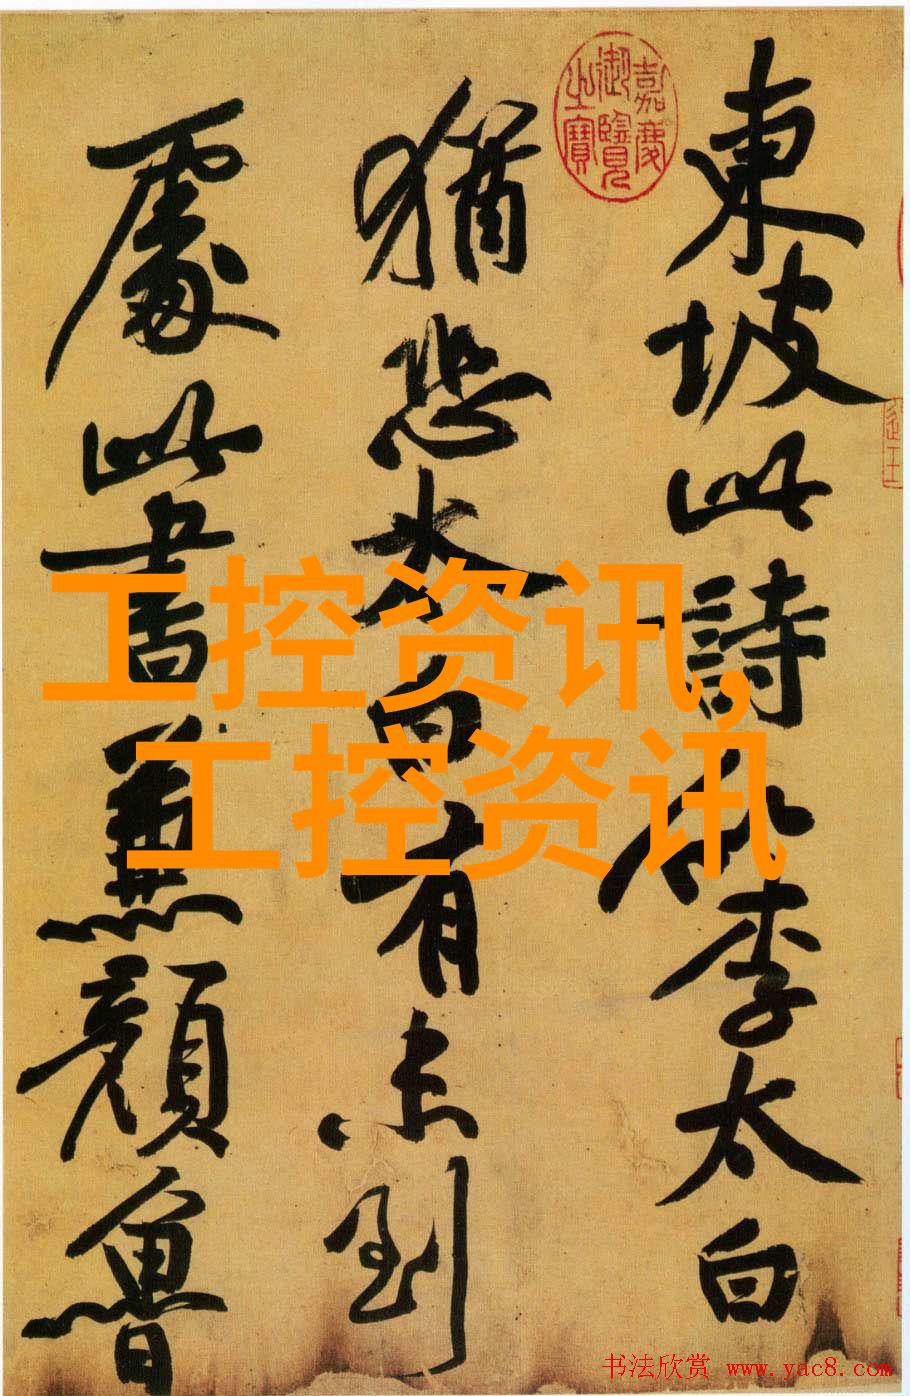 東坡此詩似李太白
猶恐太白有未到
處此書兼顏魯
嘉慶御覽之寶
工控资讯,
工控资讯
书法欣赏 www.yac8.com